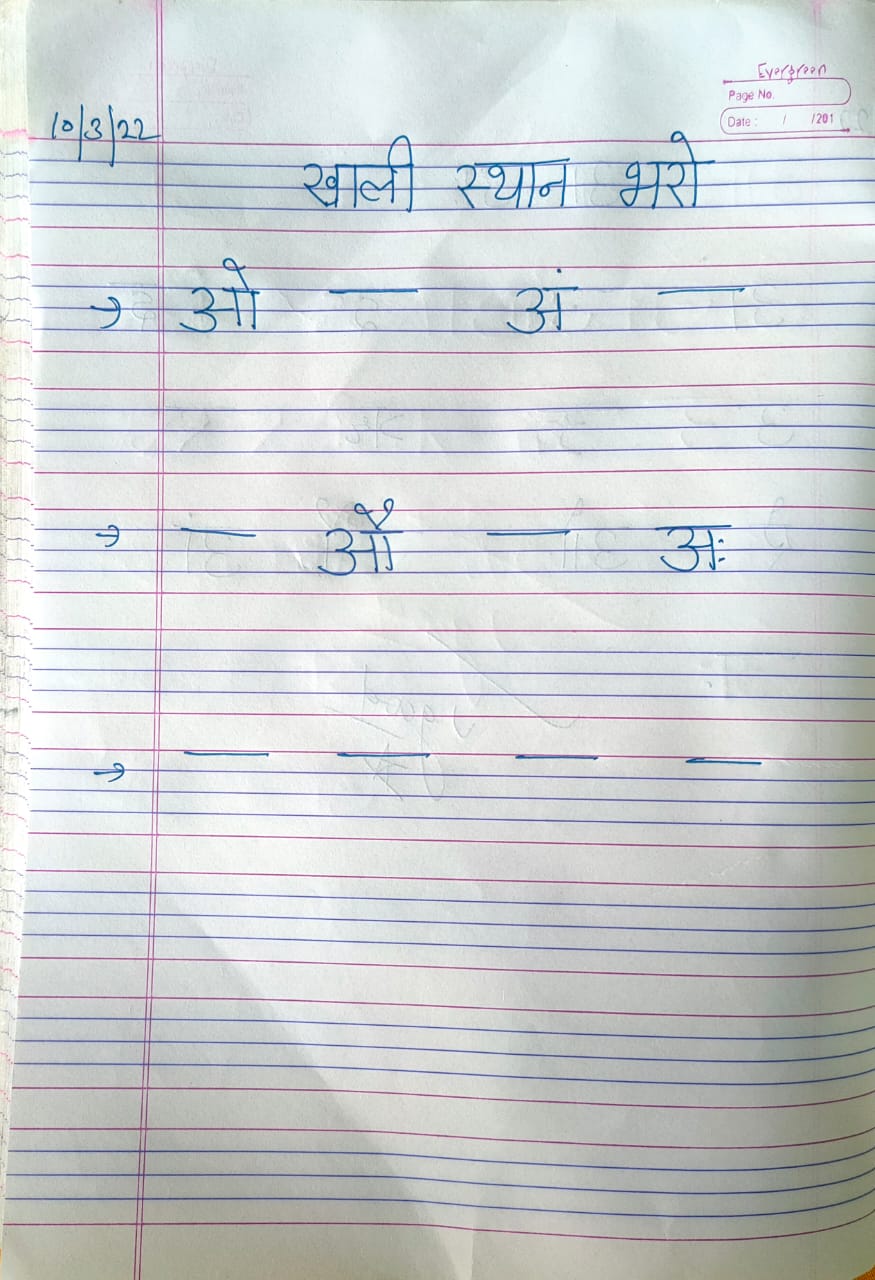 Evergreen
Page No.
Date : / /201
10/3/22
खाली स्थान भरो
→ ओ — अं —
→ — औ — अः
→ — — — —